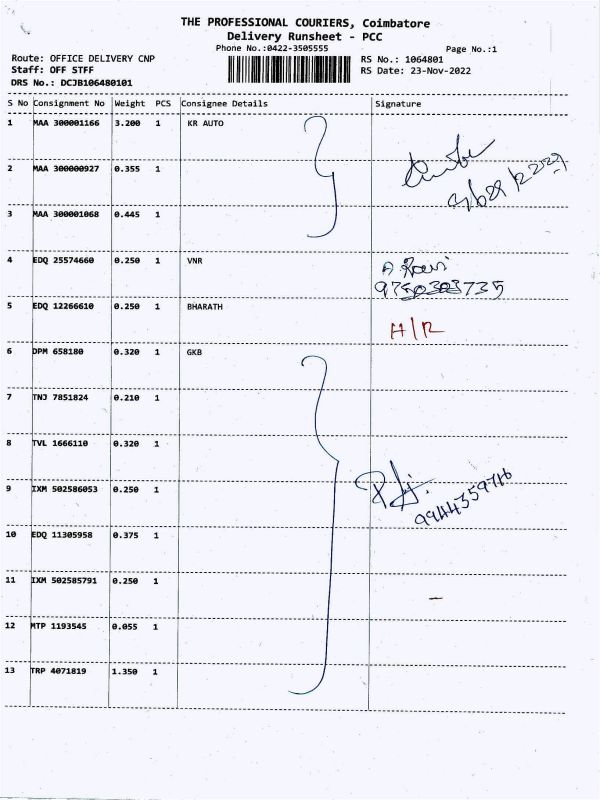 THE PROFESSIONAL COURIERS, Coimbatore
Delivery Runsheet - PCC
Phone No.:0422-3505555
Page No.:1
Route: OFFICE DELIVERY CNP
RS No.: 1064801
Staff: OFF STFF
RS Date: 23-Nov-2022
DRS No.: DCJB106480101
S No Consignment No Weight PCS Consignee Details Signature
1 MAA 300001166 3.200 1 KR AUTO
2 MAA 300000927 0.355 1
3 MAA 300001068 0.445 1
4 EDQ 25574660 0.250 1 VNR
5 EDQ 12266610 0.250 1 BHARATH
H/R
6 DPM 658180 0.320 1 GKB
7 TNJ 7851824 0.210 1
8 TVL 1666110 0.320 1
9 IXM 502586053 0.250 1
9944359716
10 EDQ 11305958 0.375 1
11 IXM 502585791 0.250 1
12 MTP 1193545 0.055 1
13 TRP 4071819 1.350 1